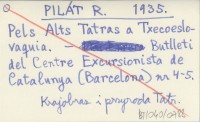 PILÁT R. 1935.
Pels Alts Tatras a Txecoeslo-
vaquia. — Butlletí
del Centre Excursionista de
Catalunya (Barcelona) nr 4-5.
Krajobraz i przyroda Tatr.